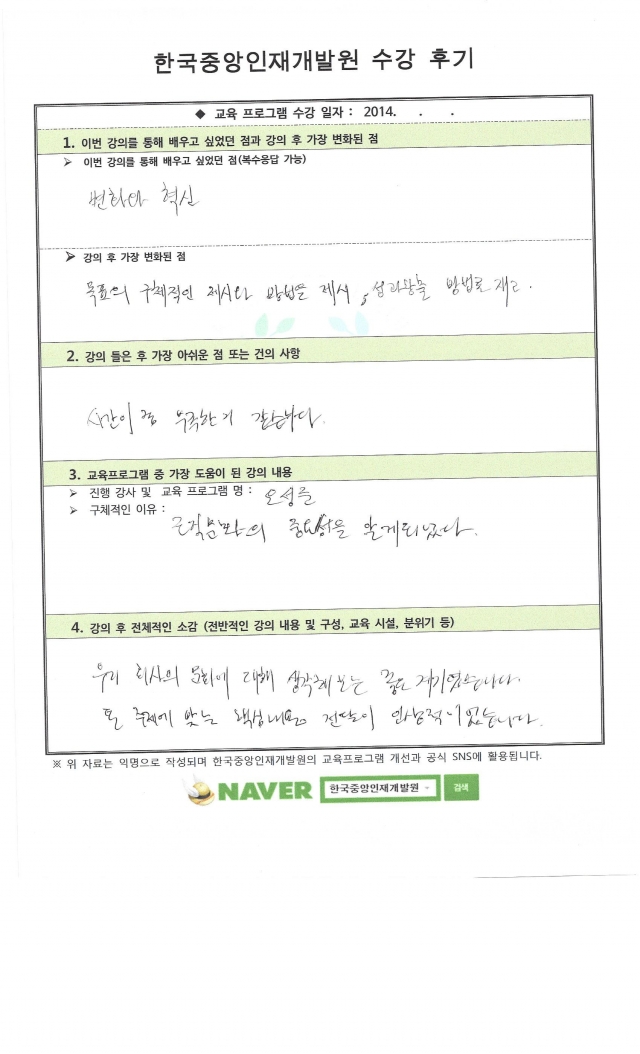 한국중앙인재개발원 수강 후기
◆ 교육 프로그램 수강 일자 : 2014. . .
1. 이번 강의를 통해 배우고 싶었던 점과 강의 후 가장 변화된 점
➢ 이번 강의를 통해 배우고 싶었던 점(복수응답 가능)
변화와 혁신
➢ 강의 후 가장 변화된 점
목표의 구체적인 제시와 방법을 제시, 방법로 재고.
2. 강의 들은 후 가장 아쉬운 점 또는 건의 사항
시간이 좀 부족한거 같습니다.
3. 교육프로그램 중 가장 도움이 된 강의 내용
➢ 진행 강사 및 교육 프로그램 명 :
➢ 구체적인 이유 :
조직문화의 중요성을 알게되었다.
4. 강의 후 전체적인 소감 (전반적인 강의 내용 및 구성, 교육 시설, 분위기 등)
우리 회사의 문화에 대해 생각해보는 좋은 계기였습니다.
또 주제에 맞는 핵심내용 전달이 인상적이었습니다.
※ 위 자료는 익명으로 작성되며 한국중앙인재개발원의 교육프로그램 개선과 공식 SNS에 활용됩니다.
NAVER 한국중앙인재개발원 검색